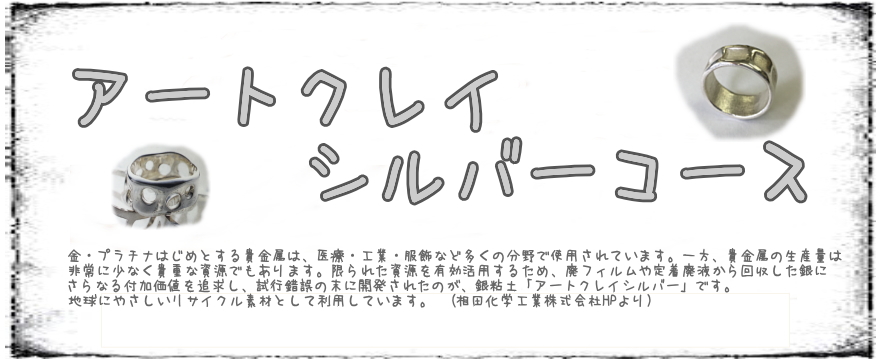 アートクレイ
シルバーコース
金・プラチナはじめとする貴金属は、医療・工業・服飾など多くの分野で使用されています。一方、貴金属の生産量は
非常に少なく貴重な資源でもあります。限られた資源を有効活用するため、廃フィルムや定着廃液から回収した銀に
さらなる付加価値を追求し、試行錯誤の末に開発されたのが、銀粘土「アートクレイシルバー」です。
地球にやさしいリサイクル素材として利用しています。（相田化学工業株式会社HPより）